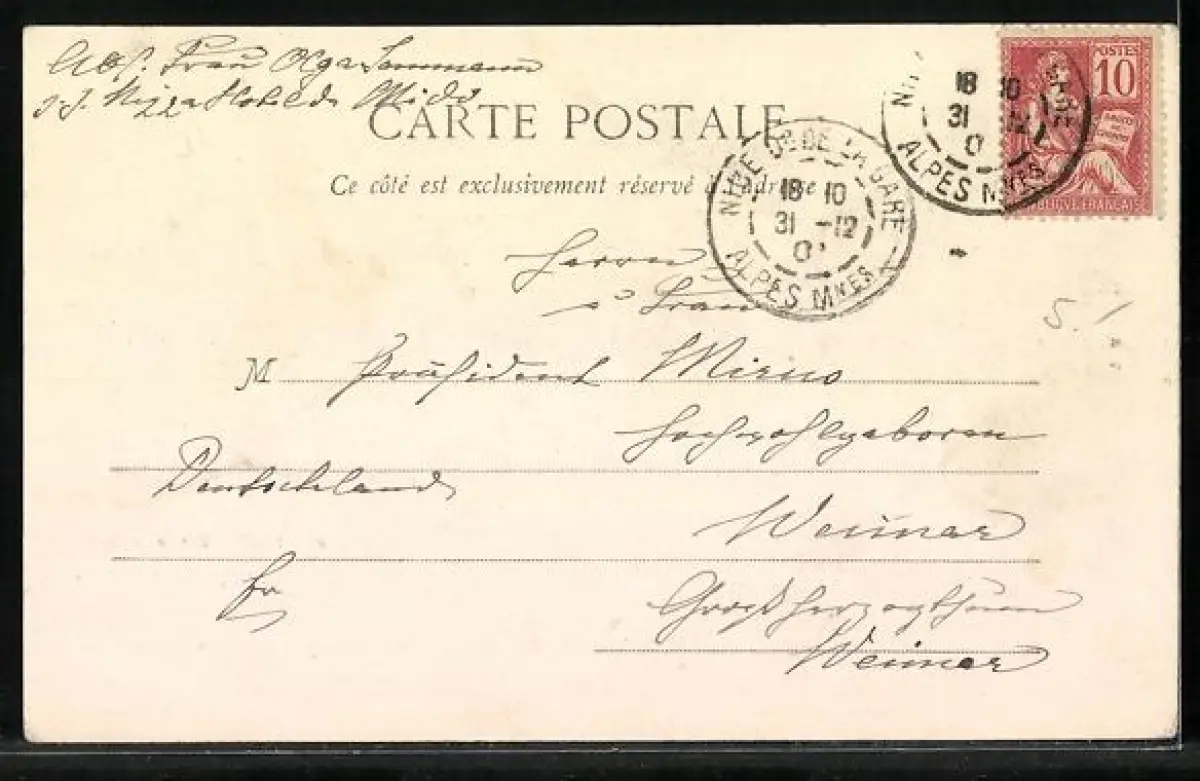 Abs. Frau Olga
Nizza Hotel du Midi
CARTE POSTALE
Ce côté est exclusivement réservé à l'adresse
POSTES
10
DROITS DE L'HOMME
RÉPUBLIQUE FRANÇAISE
GARE
18 10
31 -12
0
ALPES MMES
NICE DE LA GARE
18 10
31 -12
0
ALPES MMES
Herrn
u Frau
M Präsident Mirus
Hochwohlgeboren
Deutschland
Weimar
fr
Großherzogthum
Weimar
5.